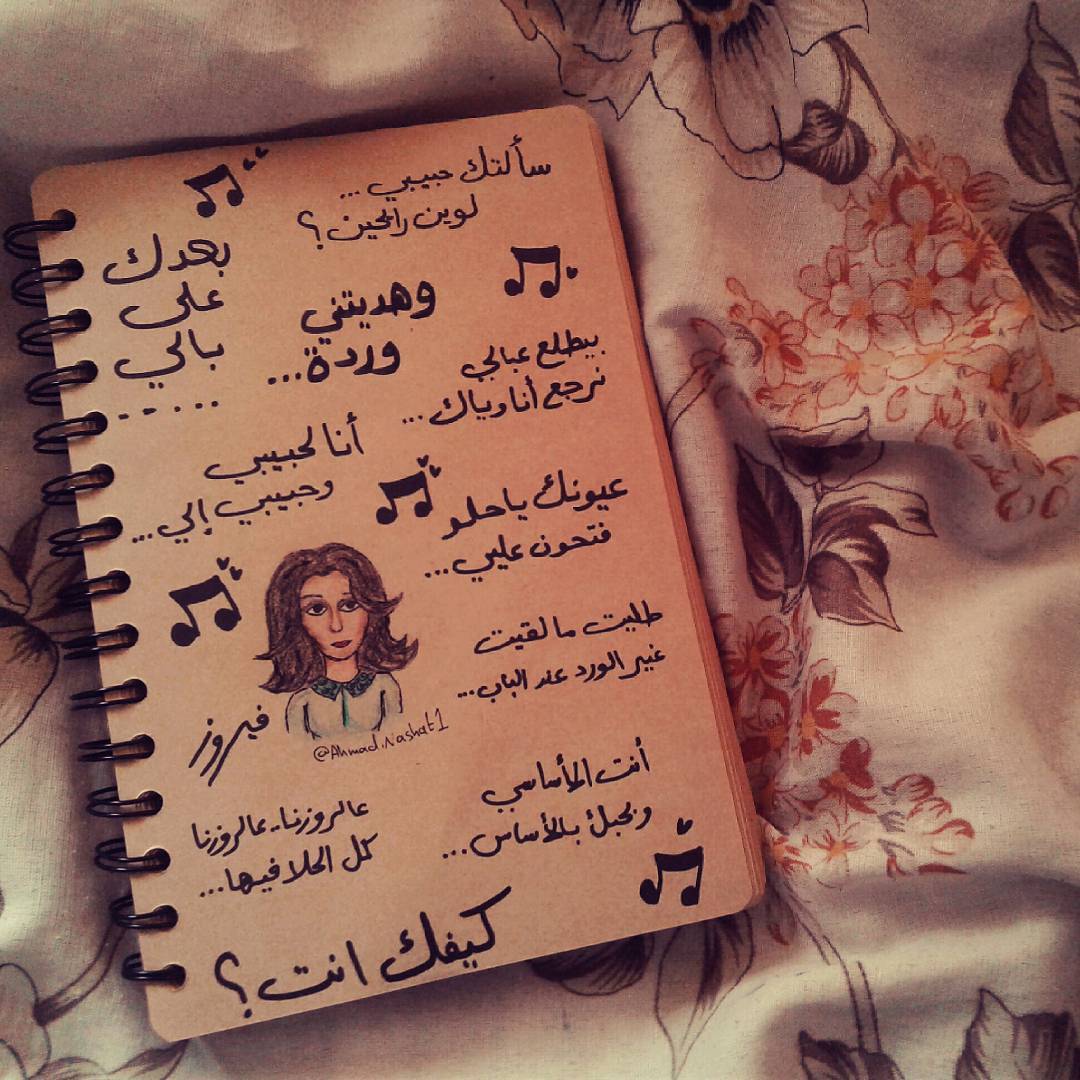 سألتك حبيبي ...
لوين رايحين ؟
بعدك
على
بالي
......
وهديتني
وردة ...
بيطلع عبالي
نرجع أنا وياك ...
أنا لحبيبي
وحبيبي إلي ...
عيونك يا حلو
فتحون عليي ...
طليت ما لقيت
غير الورد عند الباب ...
فيروز
@Ahmad.Nashat1
أنت الأساسي
وبحبك بالأساس ...
عالروزنا .. عالروزنا
كل الحلا فيها ...
كيفك انت ؟